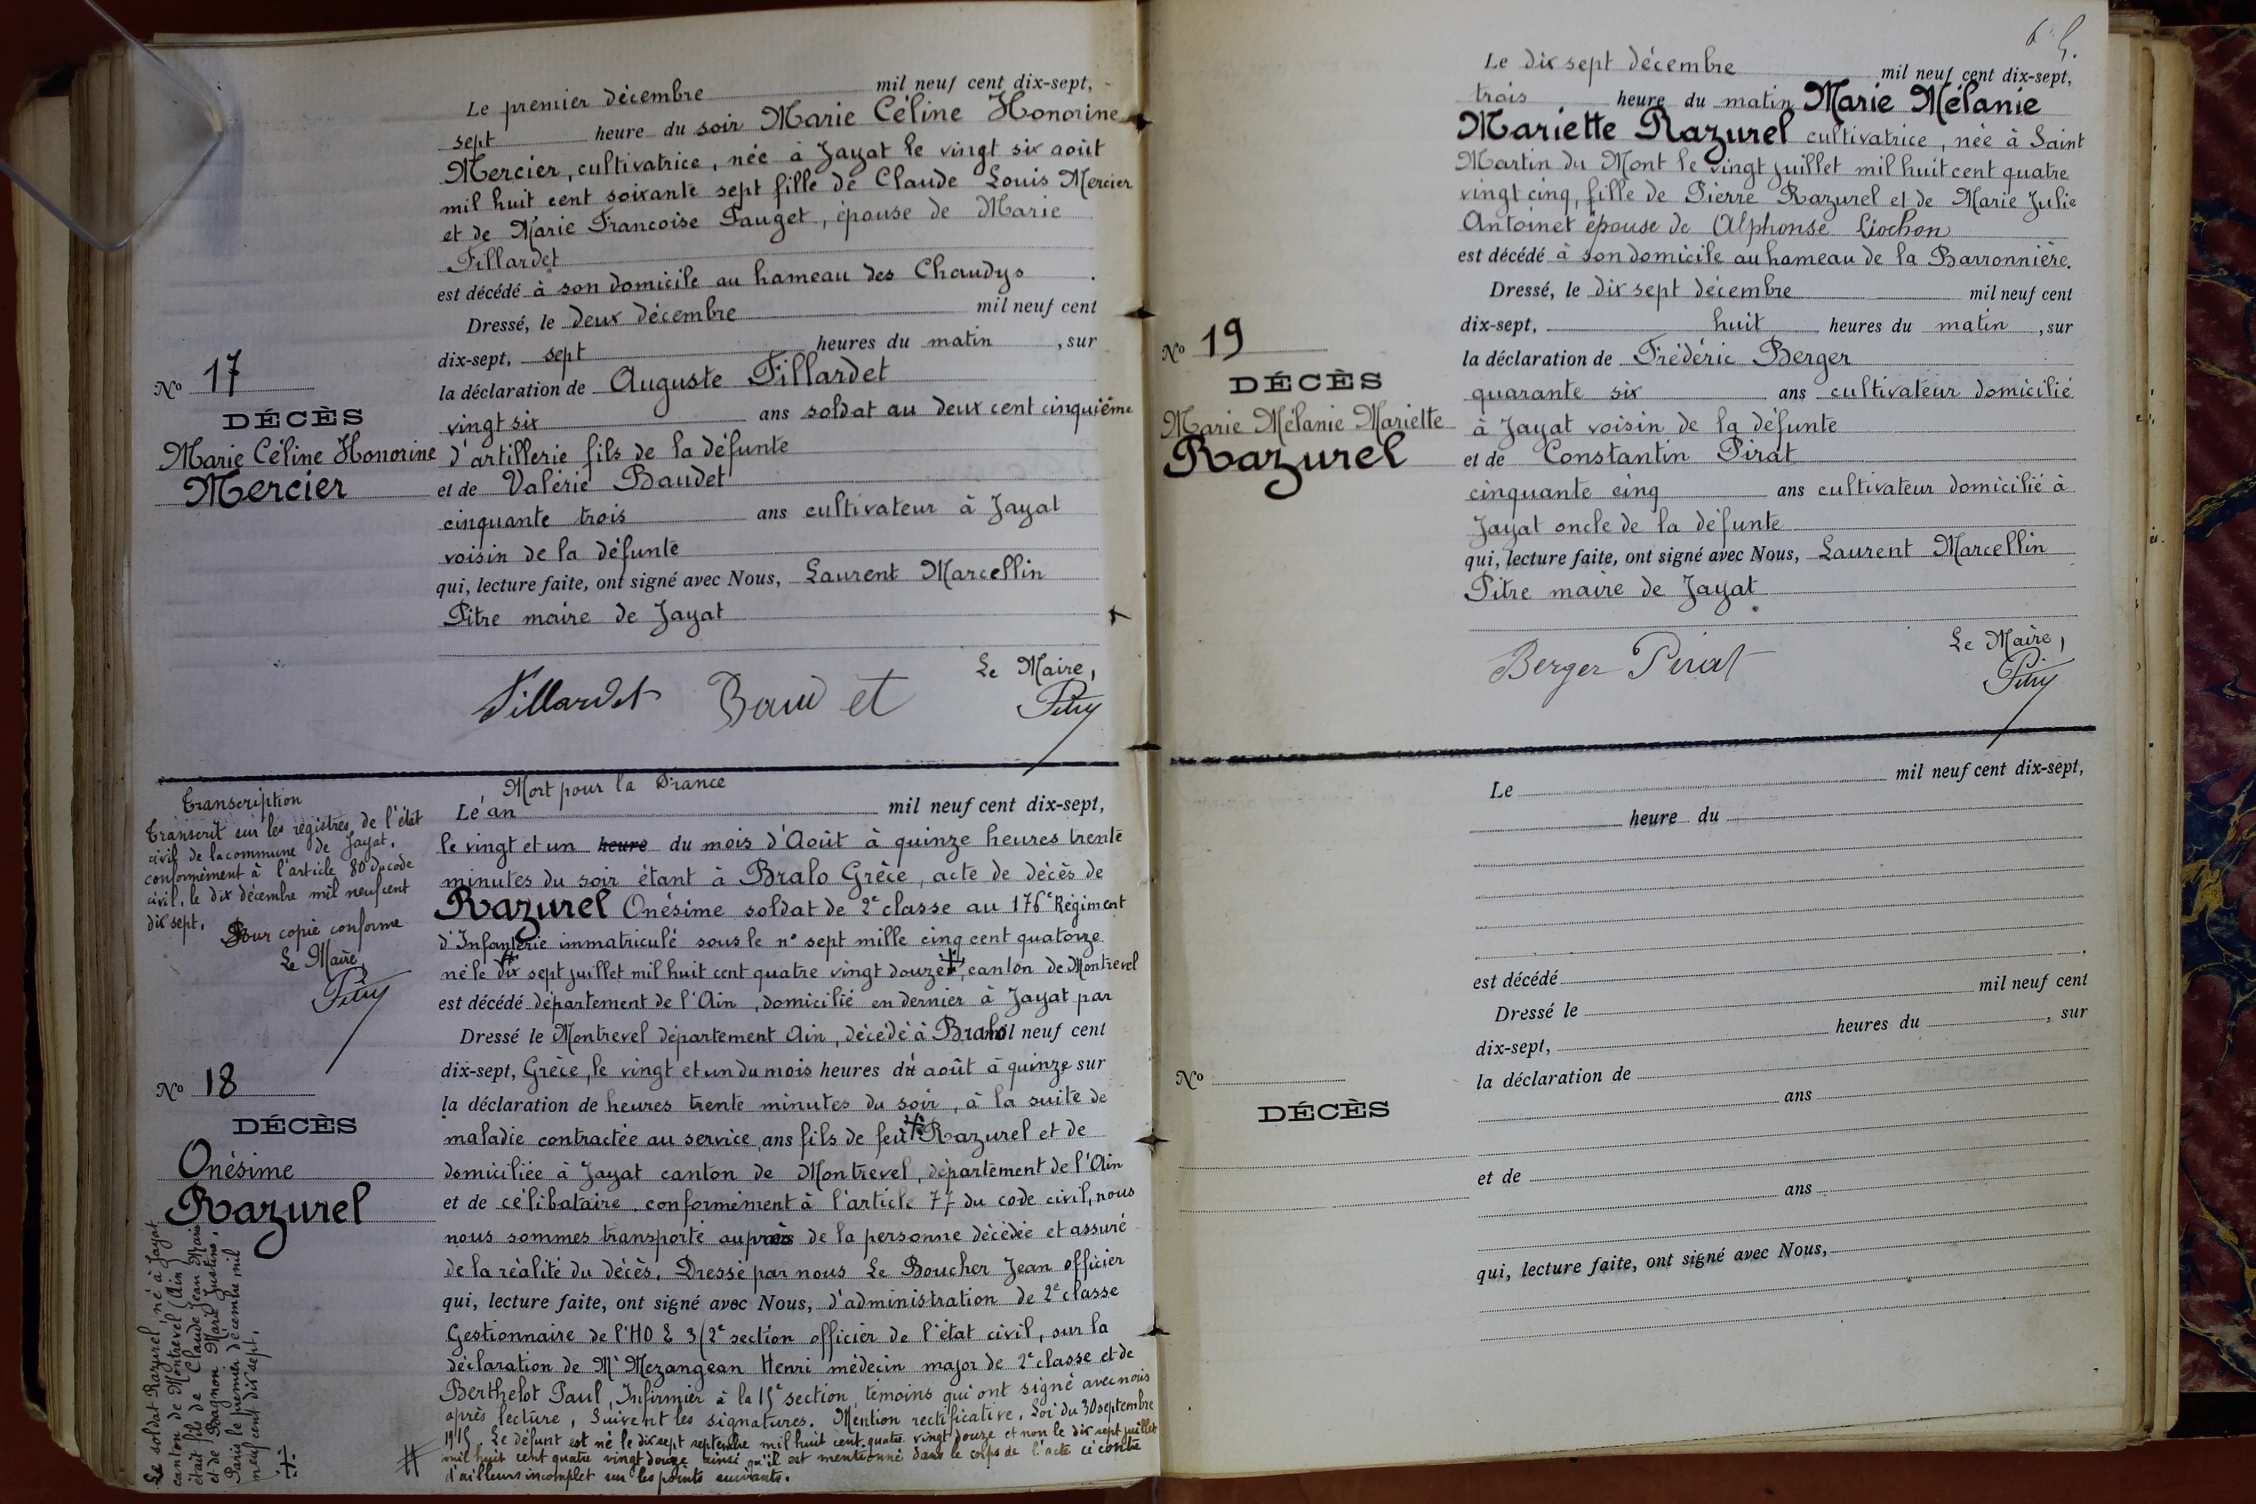 Le premier décembre mil neuf cent dix-sept,
sept heure du soir Marie Céline Honorine
Mercier, cultivatrice, née à Jayat le vingt six août
mil huit cent soixante sept fille de Claude Louis Mercier
et de Marie Françoise Fauget, épouse de Marie
Fillardet
est décédé à son domicile au hameau des Chaudys
Dressé, le deux décembre mil neuf cent
dix-sept, sept heures du matin, sur
la déclaration de Auguste Fillardet
vingt six ans soldat au deux cent cinquième
d'artillerie fils de la défunte
et de Valérie Baudet
cinquante trois ans cultivateur à Jayat
voisin de la défunte
qui, lecture faite, ont signé avec Nous, Laurent Marcellin
Pitre maire de Jayat
Le Maire,
Fillardet Baudet Pitre
No 17
DÉCÈS
Marie Céline Honorine
Mercier
Transcription
Transcrit sur les registres de l'état
civil de la commune de Jayat,
conformément à l'article 80 du code
civil, le dix décembre mil neuf cent
dix sept.
Pour copie conforme
Le Maire,
Pitre
No 18
DÉCÈS
Onésime
Razurel
Le soldat Razurel, né à Jayat
canton de Montrevel (Ain)
était fils de Claude Jean Marie
et de Bagnon Marie Justine.
Paris le premier décembre mil
neuf cent dix sept.
Mort pour la France
Le an mil neuf cent dix-sept,
le vingt et un heure du mois d'Août à quinze heures trente
minutes du soir étant à Bralo Grèce, acte de décès de
Razurel Onésime soldat de 2e classe au 176e Régiment
d'Infanterie immatriculé sous le n° sept mille cinq cent quatorze
né le dix sept juillet mil huit cent quatre vingt douze, canton de Montrevel
est décédé département de l'Ain, domicilié en dernier à Jayat par
Dressé le Montrevel département Ain, décédé à Bralo mil neuf cent
dix-sept, Grèce, le vingt et un du mois heures du août à quinze sur
la déclaration de heures trente minutes du soir, à la suite de
maladie contractée au service ans fils de feu Razurel et de
domiciliée à Jayat canton de Montrevel, département de l'Ain
et de célibataire conformément à l'article 77 du code civil, nous
nous sommes transporté auprès de la personne décédée et assuré
de la réalité du décès. Dressé par nous Le Boucher Jean officier
qui, lecture faite, ont signé avec Nous, d'administration de 2e classe
Gestionnaire de l'HO E 3/2e section officier de l'état civil, sur la
déclaration de Mr Mezangean Henri médecin major de 2e classe et de
Berthelot Paul, Infirmier à la 15e section, témoins qui ont signé avec nous
après lecture, Suivent les signatures. Mention rectificative. Loi du 30 septembre
1915. Le défunt est né le dix sept septembre mil huit cent quatre vingt douze et non le dix sept juillet
mil huit cent quatre vingt douze ainsi qu'il est mentionné dans le corps de l'acte ci contre
d'ailleurs incomplet sur les points suivants.
Le dix sept décembre mil neuf cent dix-sept,
trois heure du matin Marie Mélanie
Mariette Razurel cultivatrice, née à Saint
Martin du Mont le vingt juillet mil huit cent quatre
vingt cinq, fille de Pierre Razurel et de Marie Julie
Antoinet épouse de Alphonse Liochon
est décédé à son domicile au hameau de la Barronnière.
Dressé, le dix sept décembre mil neuf cent
dix-sept, huit heures du matin, sur
la déclaration de Frédéric Berger
quarante six ans cultivateur domicilié
à Jayat voisin de la défunte
et de Constantin Pirat
cinquante cinq ans cultivateur domicilié à
Jayat oncle de la défunte
qui, lecture faite, ont signé avec Nous, Laurent Marcellin
Pitre maire de Jayat
Le Maire,
Berger Pirat Pitre
No 19
DÉCÈS
Marie Mélanie Mariette
Razurel
Le mil neuf cent dix-sept,
heure du
est décédé
Dressé le mil neuf cent
dix-sept, heures du , sur
la déclaration de
ans
et de
ans
qui, lecture faite, ont signé avec Nous,
No
DÉCÈS